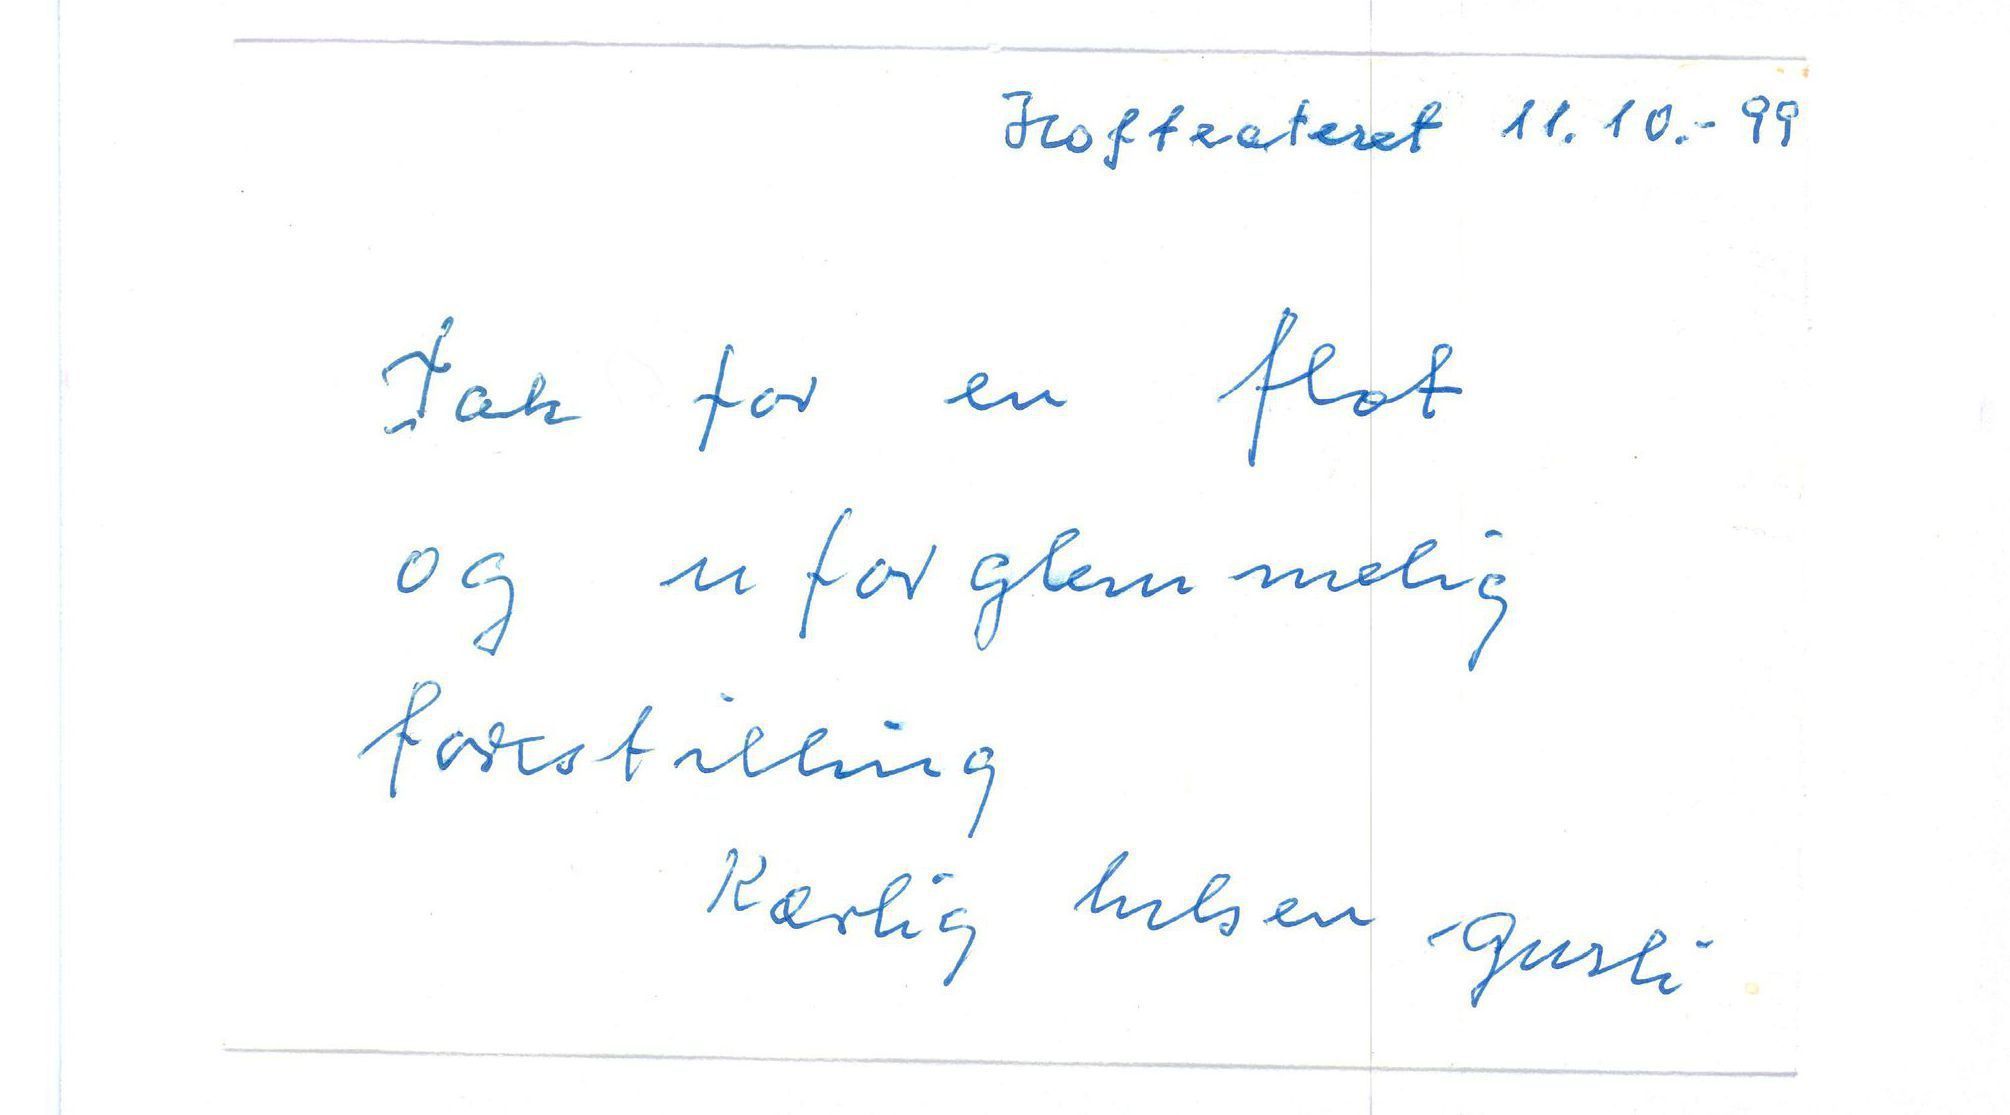 Hofteateret 11.10.-99
Tak for en flot
og uforglemmelig
forestilling
Kærlig hilsen Gurli